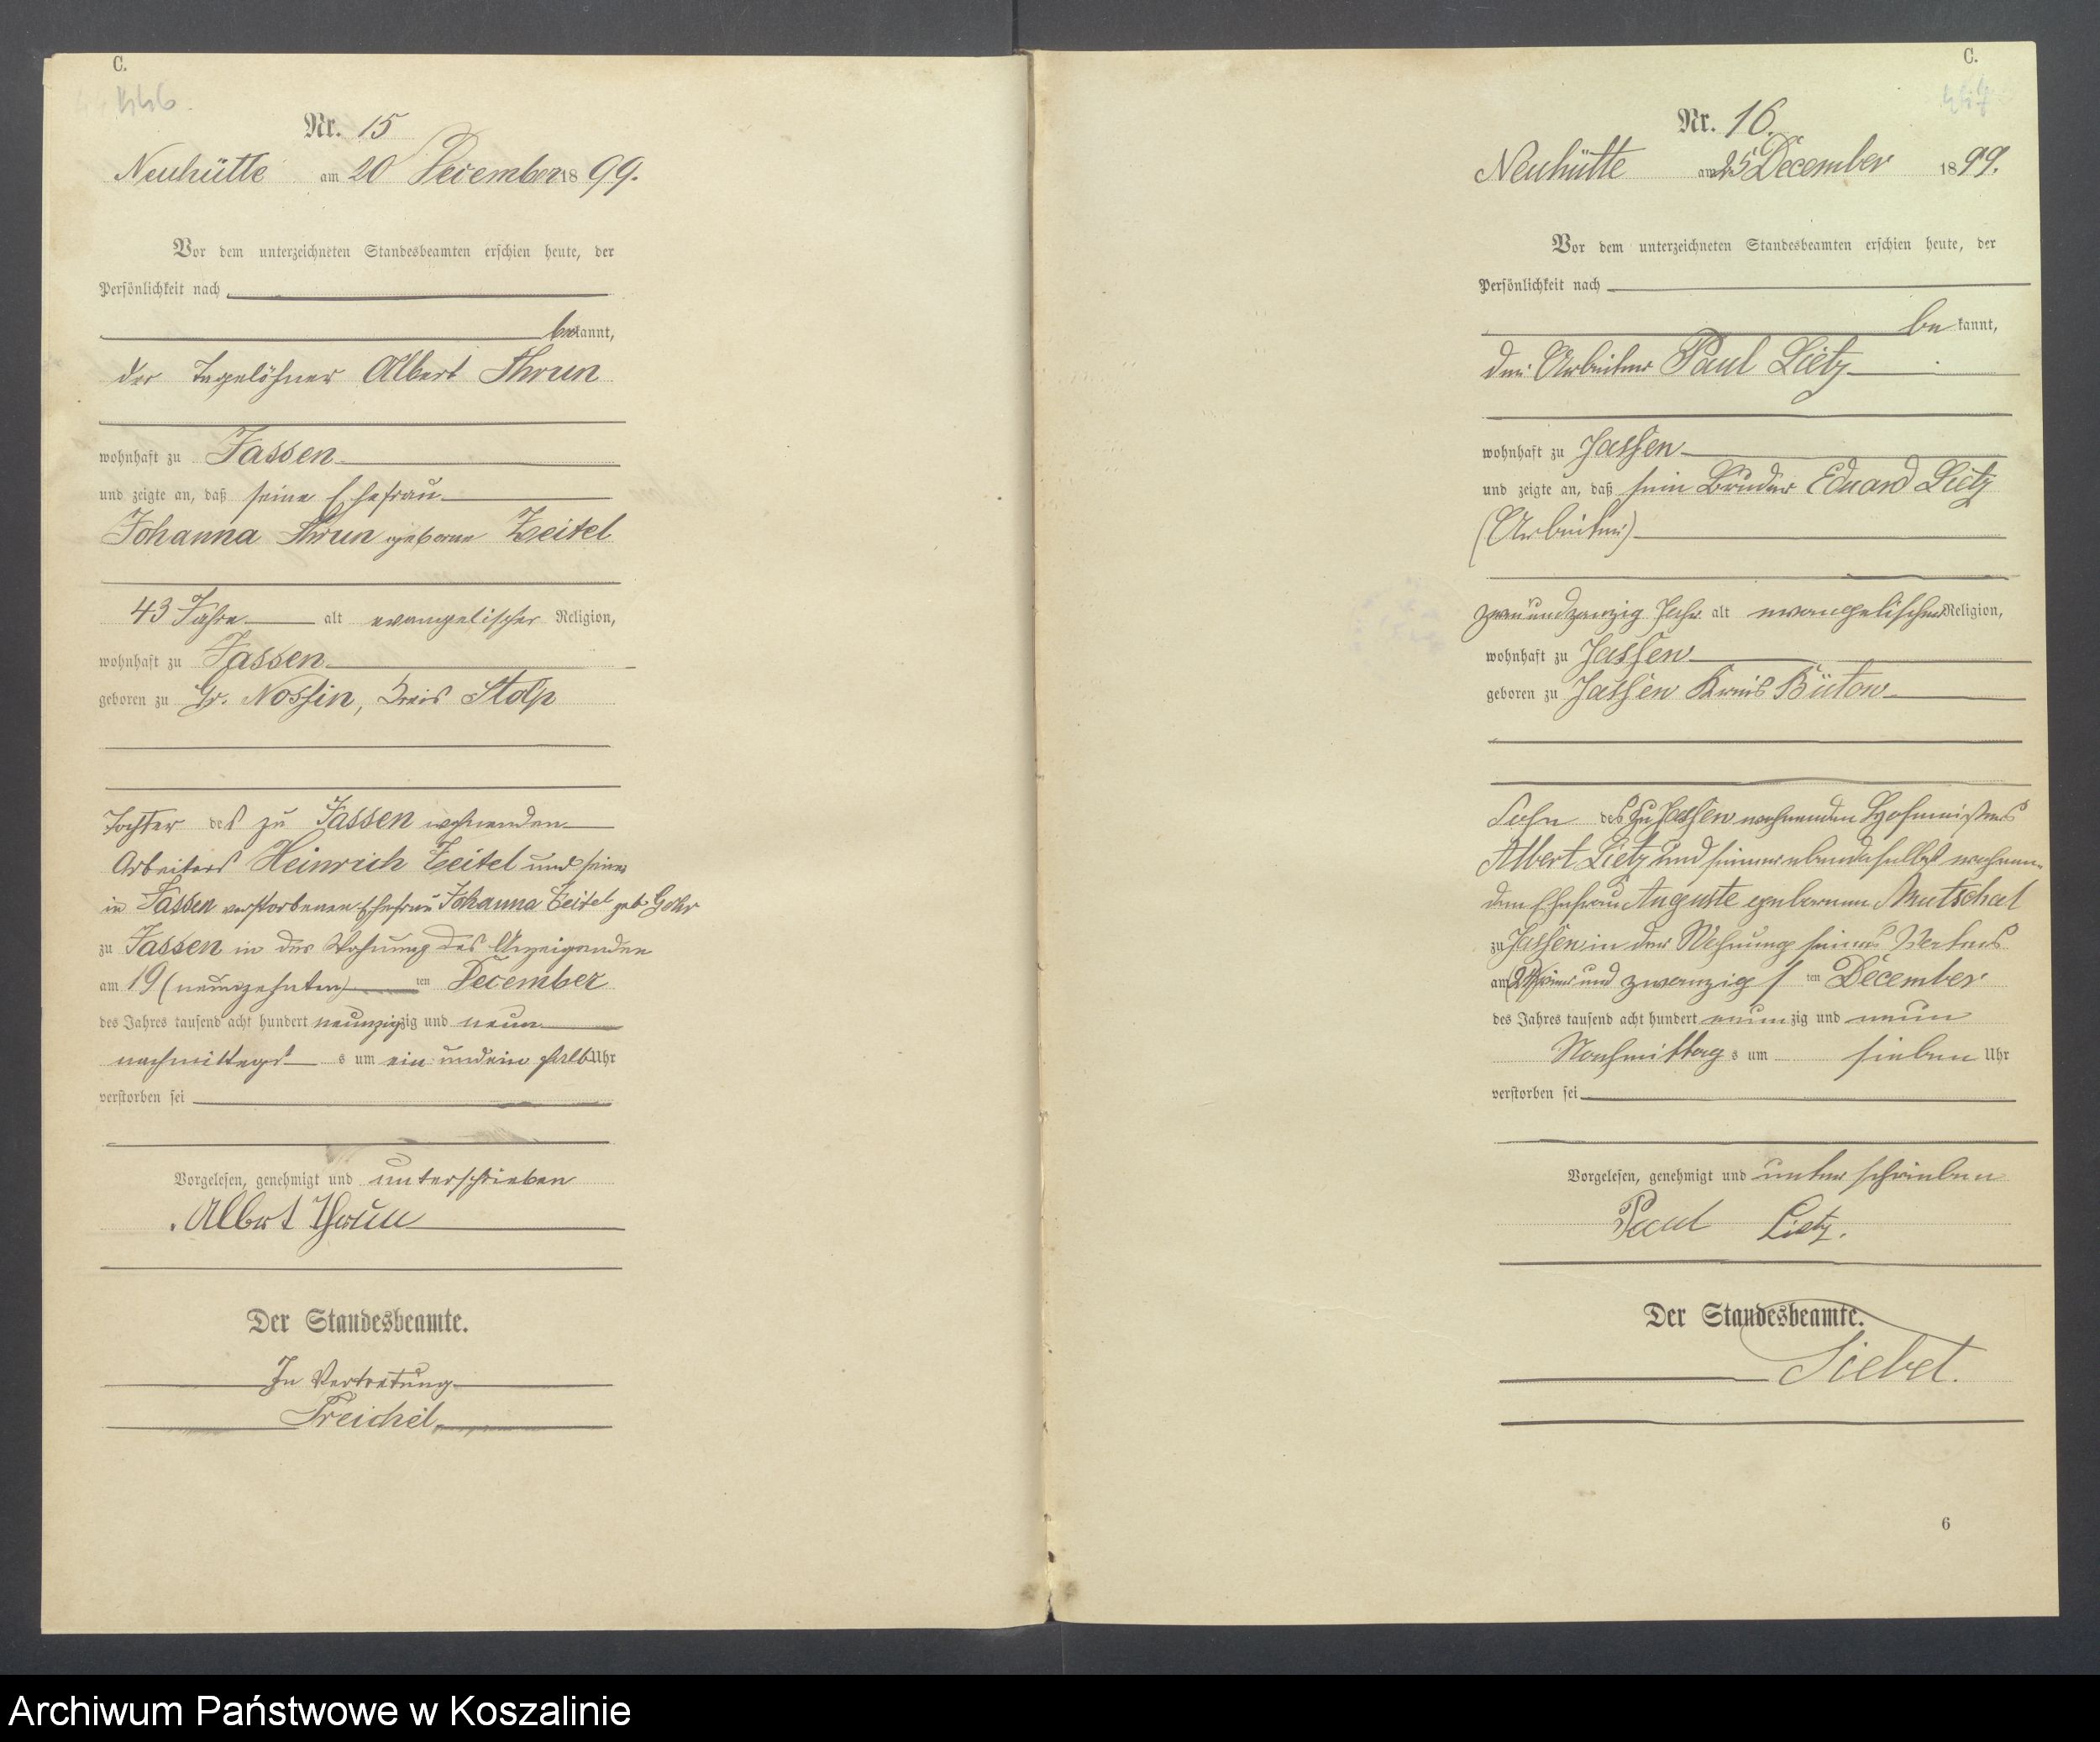 C.
Nr. 15
Neuhütte am 20 December 1899.
Vor dem unterzeichneten Standesbeamten erschien heute, der
Persönlichkeit nach
bekannt,
der Tagelöhner Albert Thrun
wohnhaft zu Jassen
und zeigte an, daß seine Ehefrau
Johanna Thrun geborne Zeitel
43 Jahre alt evangelischer Religion,
wohnhaft zu Jassen
geboren zu Gr. Nossin, Kreis Stolp
Tochter des zu Jassen wohnenden
Arbeiters Heinrich Zeitel und seiner
in Jassen verstorbenen Ehefrau Johanna Zeitel geb Gohr
zu Jassen in der Wohnung des Anzeigenden
am 19 (neunzehnten) ten December
des Jahres tausend acht hundert neunzigzig und neun
nachmittags s um ein und ein halb Uhr
verstorben sei
Vorgelesen, genehmigt und unterschrieben
Albert Thrun
Der Standesbeamte.
In Vertretung
Treichel
C.
Nr. 16.
Neuhütte am 25 December 1899.
Vor dem unterzeichneten Standesbeamten erschien heute, der
Persönlichkeit nach
be kannt,
der Arbeiter Paul Lietz
wohnhaft zu Jassen
und zeigte an, daß sein Bruder Eduard Lietz
(Arbeiter)
zweiundzwanzig Jahr alt evangelischer Religion,
wohnhaft zu Jassen
geboren zu Jassen Kreis Bütow
Sohn des zu Jassen wohnenden Hofmeisters
Albert Lietz und seiner ebendaselbst wohnen-
den Ehefrau Auguste geborenen Mutschal
zu Jassen in der Wohnung seines Vaters
am (24) vier und zwanzig / ten December
des Jahres tausend acht hundert neunzig und neun
Nachmittag s um sieben Uhr
verstorben sei
Vorgelesen, genehmigt und unterschrieben
Paul Lietz.
Der Standesbeamte.
Siebet.
6
Archiwum Państwowe w Koszalinie